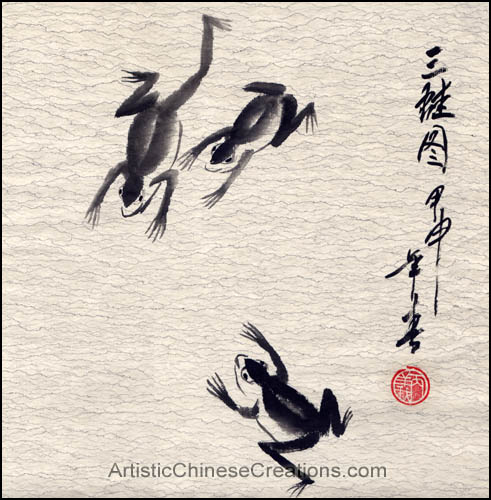 三蛙图甲申年
ArtisticChineseCreations.com